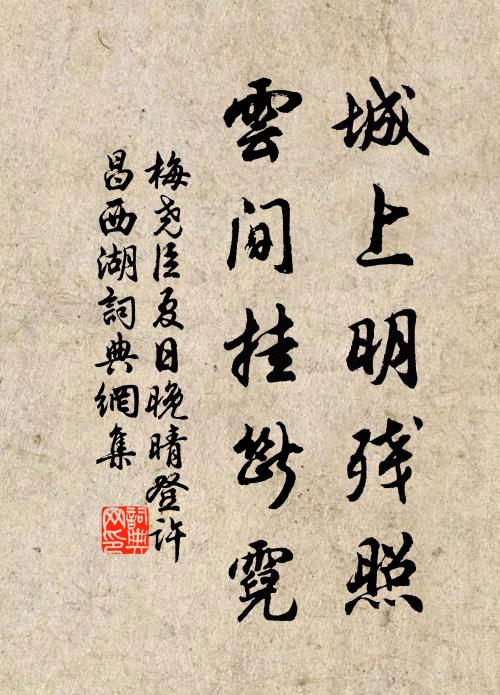 城上明残照
雲间挂断霓
梅尧臣夏日晚晴登许
昌西湖詞典網集
詞典网